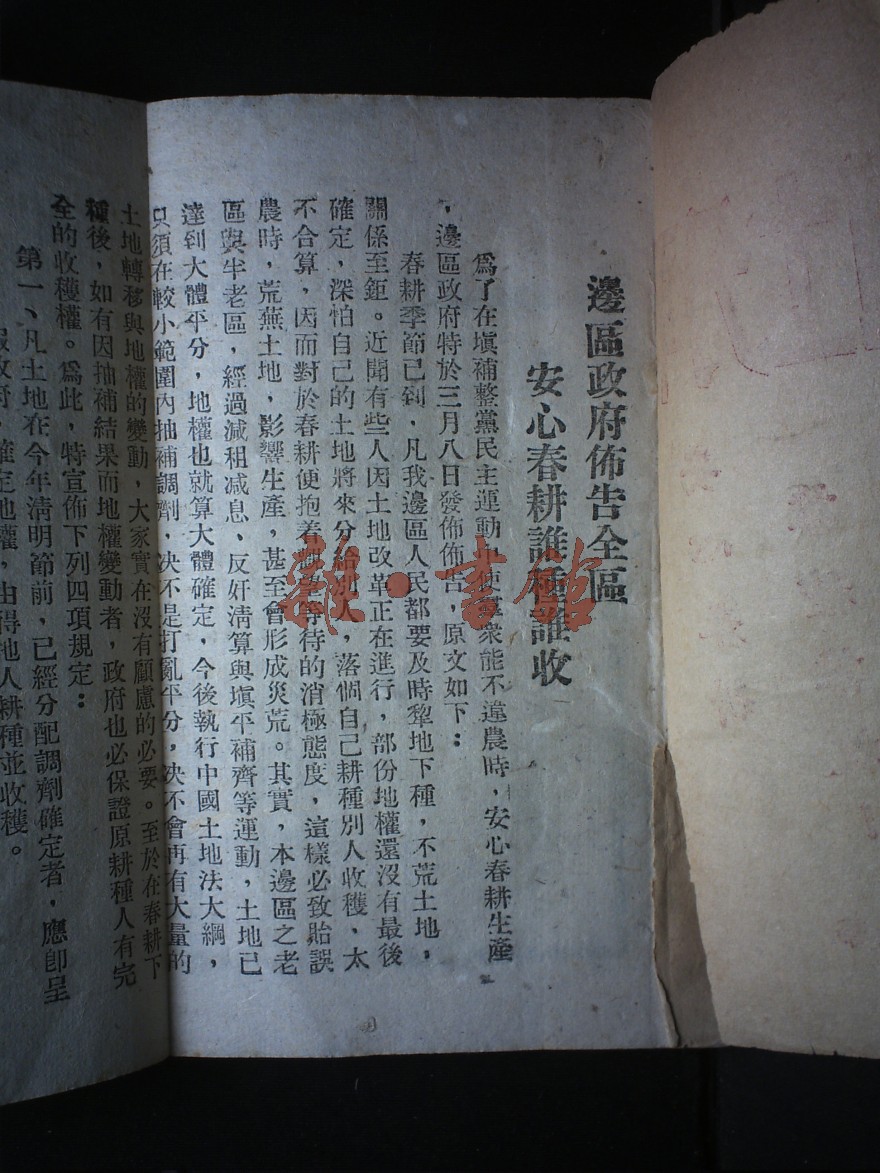 邊區政府佈告全區
安心春耕誰種誰收
爲了在塡補整黨民主運動中使羣衆能不違農時，安心春耕生產
，邊區政府特於三月八日發佈佈告，原文如下：
春耕季節已到，凡我邊區人民都要及時犂地下種，不荒土地，
關係至鉅。近聞有些人因土地改革正在進行，部份地權還沒有最後
確定，深怕自己的土地將來分給別人，落個自己耕種別人收穫，太
不合算，因而對於春耕便抱着觀望等待的消極態度，這樣必致貽誤
農時，荒蕪土地，影響生產，甚至會形成災荒。其實，本邊區之老
區與半老區，經過減租減息、反奸淸算與塡平補齊等運動，土地已
達到大體平分，地權也就算大體確定，今後執行中國土地法大綱，
只須在較小範圍內抽補調劑，决不是打亂平分，决不會再有大量的
土地轉移與地權的變動，大家實在沒有顧慮的必要。至於在春耕下
種後，如有因抽補結果而地權變動者，政府也必保證原耕種人有完
全的收穫權。爲此，特宣佈下列四項規定：
第一、凡土地在今年淸明節前，已經分配調劑確定者，應卽呈
報政府，確定地權，由得地人耕種並收穫。
雜·書館